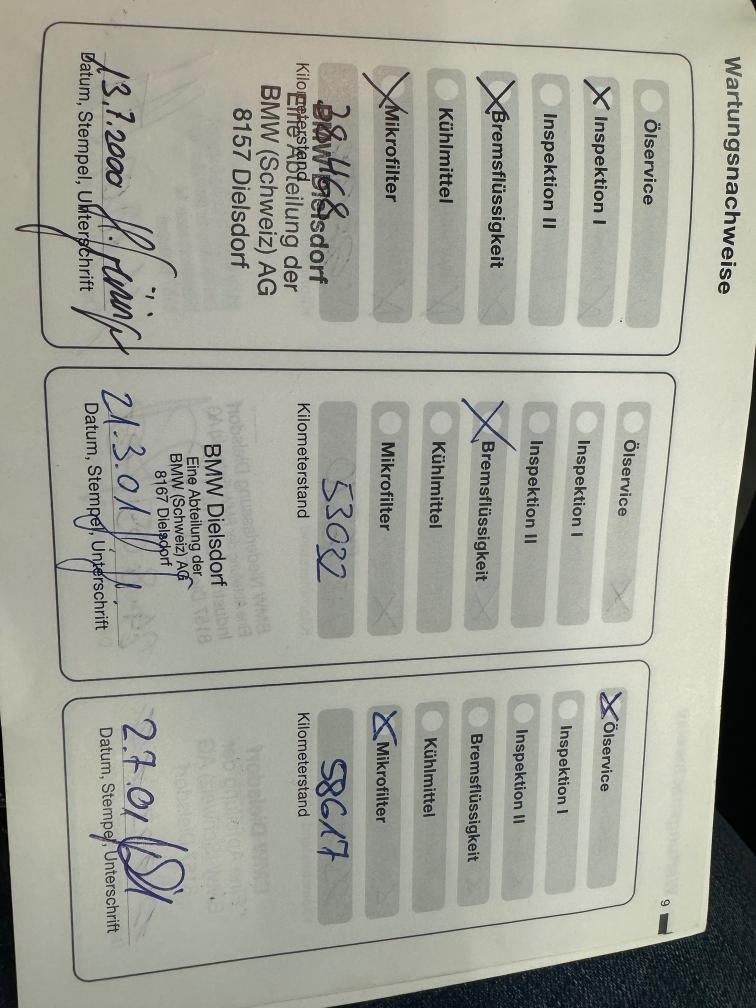 Wartungsnachweise
Ölservice
X Inspektion I
Inspektion II
X Bremsflüssigkeit
Kühlmittel
X Mikrofilter
28468
Kilometerstand
BMW Dielsdorf
Eine Abteilung der
BMW (Schweiz) AG
8157 Dielsdorf
13.7.2000
Datum, Stempel, Unterschrift
Ölservice
Inspektion I
Inspektion II
X Bremsflüssigkeit
Kühlmittel
Mikrofilter
53032
Kilometerstand
BMW Dielsdorf
Eine Abteilung der
BMW (Schweiz) AG
8167 Dielsdorf
21.3.01
Datum, Stempel, Unterschrift
X Ölservice
Inspektion I
Inspektion II
Bremsflüssigkeit
Kühlmittel
X Mikrofilter
58617
Kilometerstand
2.7.01
Datum, Stempel, Unterschrift
9